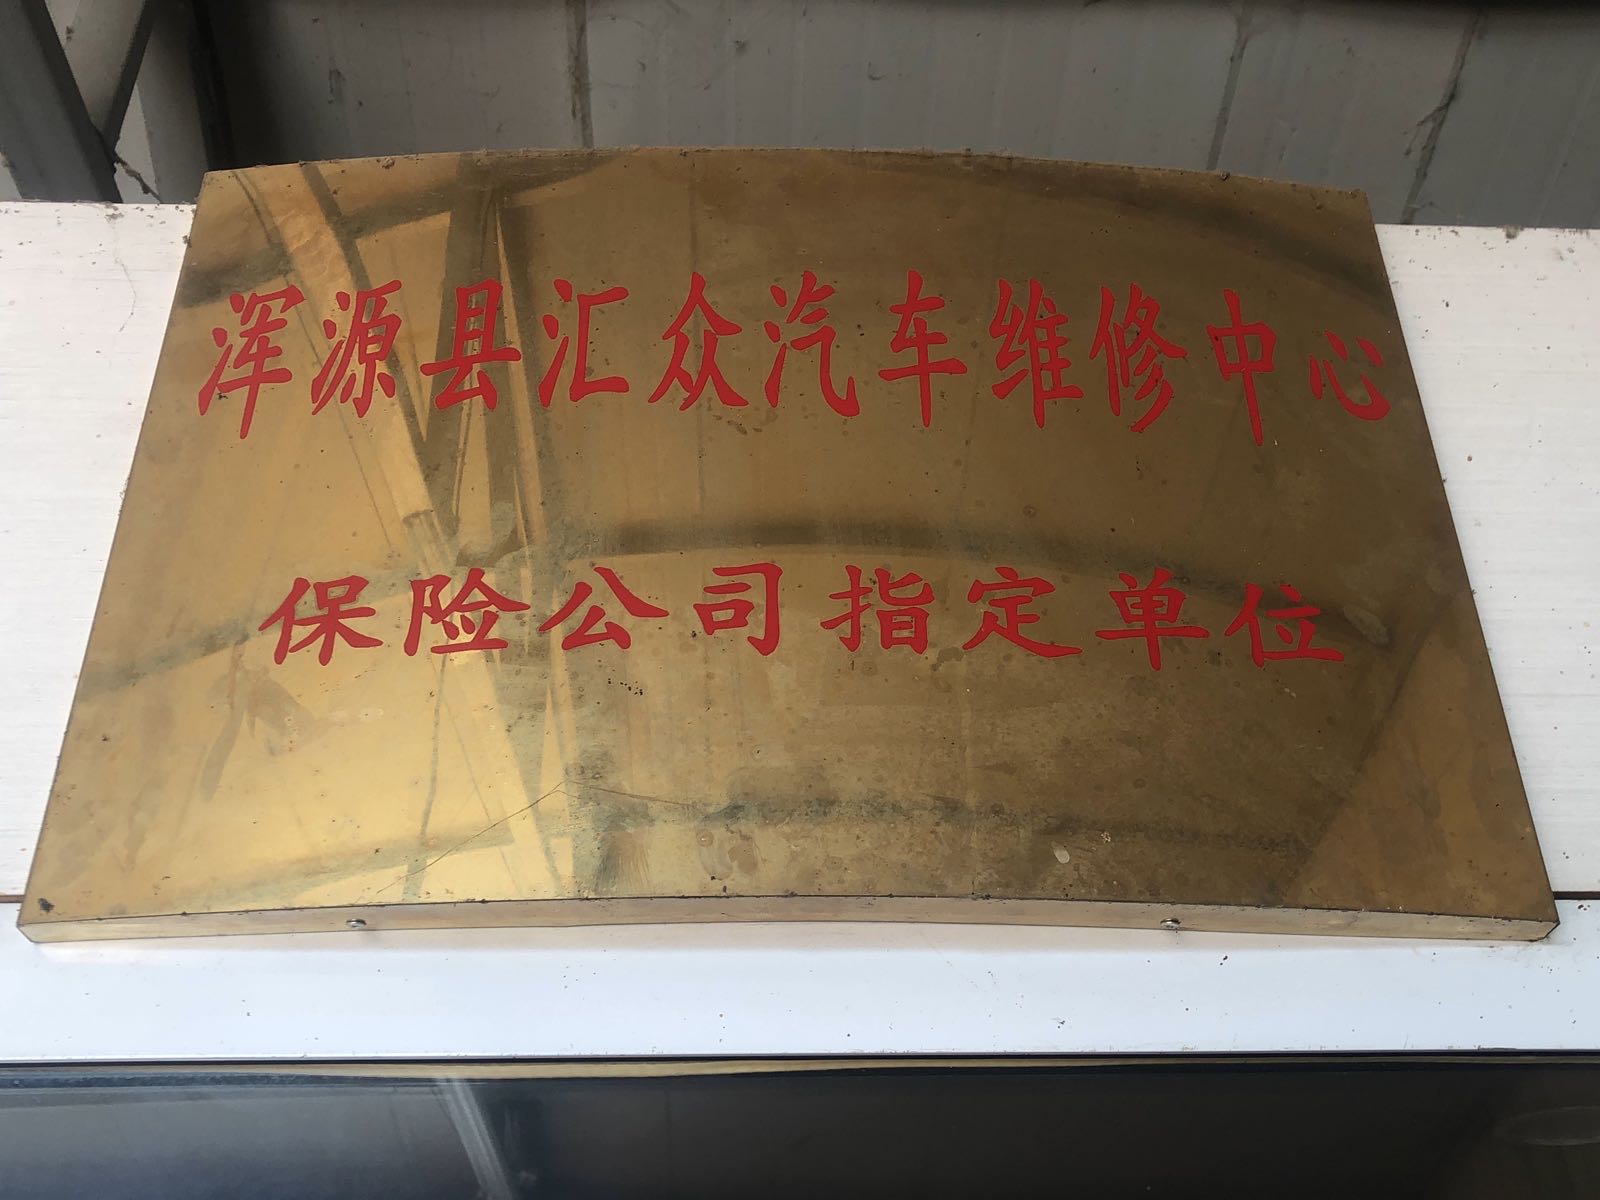 浑源县汇众汽车维修中心
保险公司指定单位